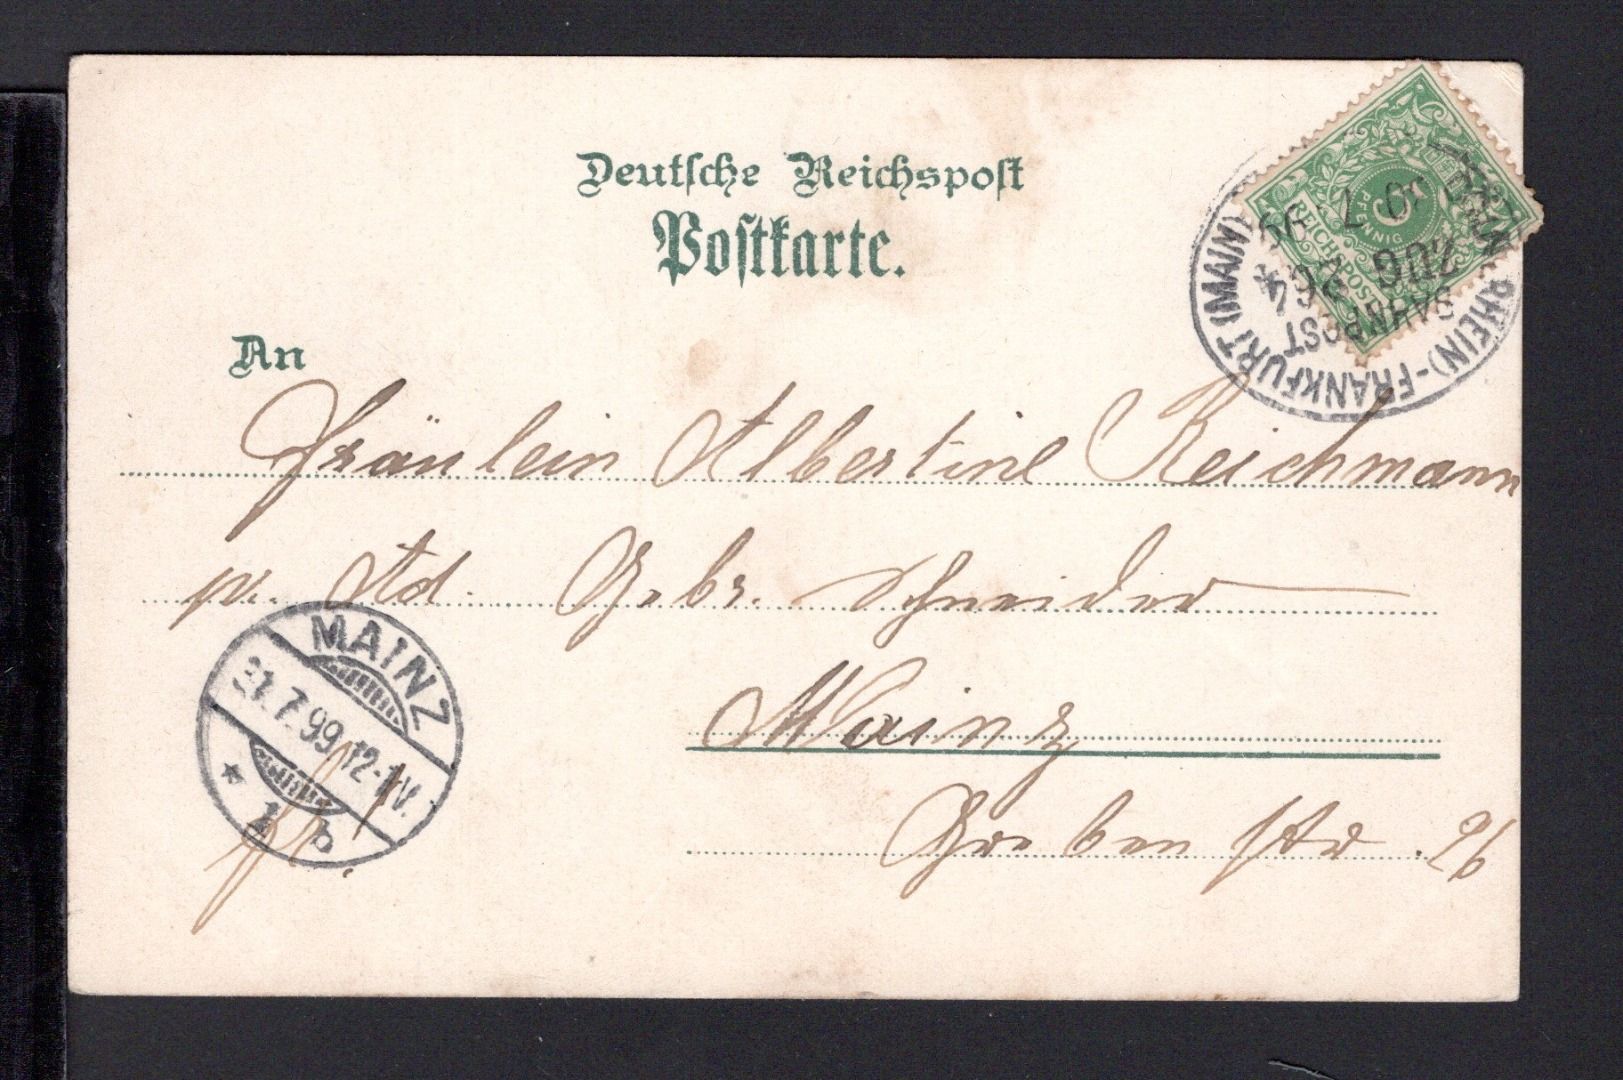 Deutsche Reichspost
Postkarte.
An
Fräulein Albertine Reichmann
pr. Ad. Gebr. Schneider
Mainz
Greben Str. 26
RHEIN)-FRANKFURT (MAIN)
BAHNPOST
ZUG 264
30 7 99
5
PFENNIG
REICHSPOST
MAINZ
31.7.99.12-1V.
* 1 b